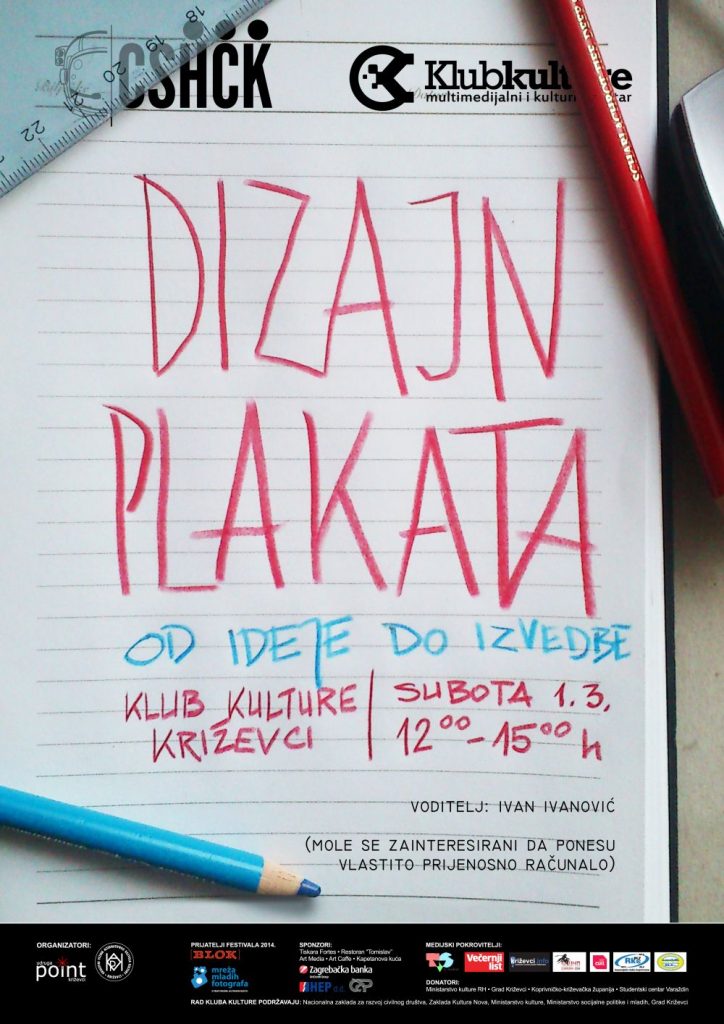 18
19
20
21
22
CSHČK
Klubkulture
multimedijalni i kultur
DIZAJN
PLAKATA
OD IDEJE DO IZVEDBE
KLUB KULTURE
KRIŽEVCI
SUBOTA 1.3.
12⁰⁰-15⁰⁰ h
VODITELJ: IVAN IVANOVIĆ
(MOLE SE ZAINTERESIRANI DA PONESU
VLASTITO PRIJENOSNO RAČUNALO)
ORGANIZATORI:
udruga
point
križevci
PRIJATELJI FESTIVALA 2014.
BLOK
mreža
mladih
fotografa
SPONZORI:
Tiskara Fortes • Restoran "Tomislav"
Art Media • Art Caffe • Kapetanova kuća
Zagrebačka banka
HEP d.d.
MEDIJSKI POKROVITELJI:
Večernji
list
križevci.info
DONATORI:
Ministarstvo kulture RH • Grad Križevci • Koprivničko-križevačka županija • Studentski centar Varaždin
RAD KLUBA KULTURE PODRŽAVAJU: Nacionalna zaklada za razvoj civilnog društva, Zaklada Kultura Nova, Ministarstvo kulture, Ministarstvo socijalne politike i mladih, Grad Križevci